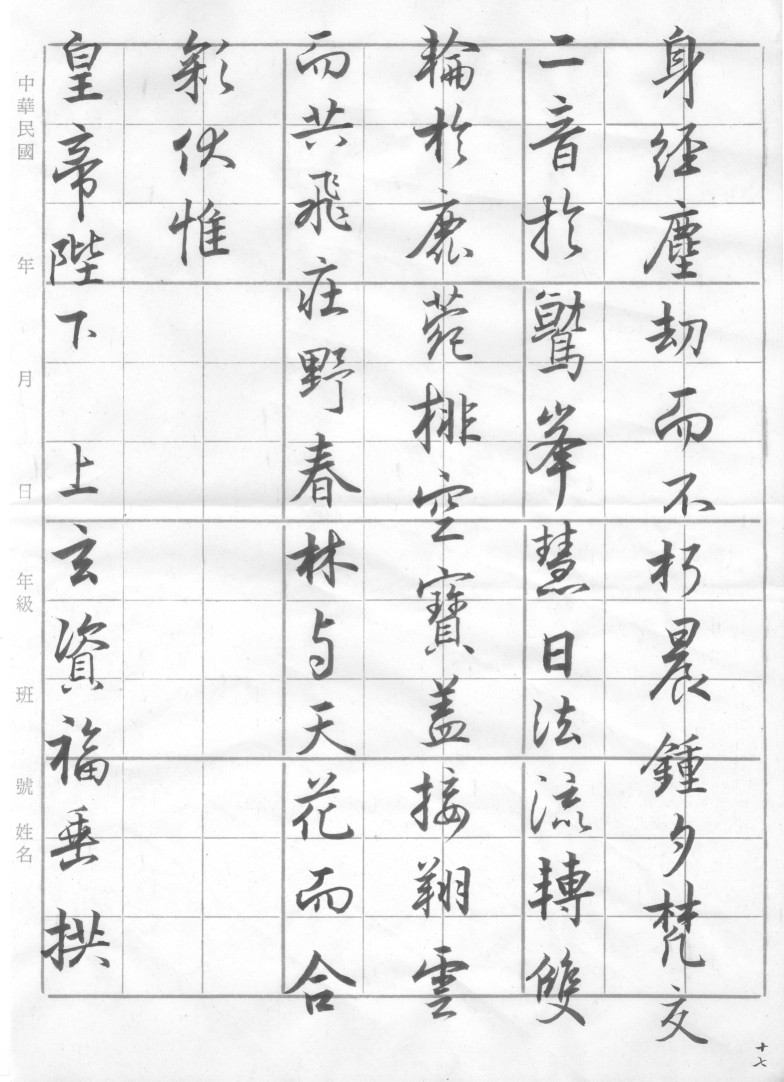 身經塵劫而不朽晨鍾夕梵交
二音於鷲峯慧日法流轉雙
輪於鹿菀排空寶盖接翔雲
而共飛庄野春林与天花而合
彩伏惟
皇帝陛下 上玄資福垂拱
中華民國 年 月 日 年級 班 號 姓名
十七